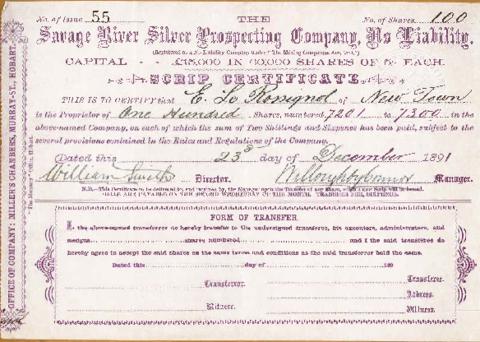 No. of Issue 55 THE No. of Shares 100
Savage River Silver Prospecting Company, No Liability.
CAPITAL - - £15,000 IN 60,000 SHARES OF 5/- EACH.
SCRIP CERTIFICATE.
THIS IS TO CERTIFY that E. Le Rossignol of New Town
is the Proprietor of One Hundred Shares, numbered 7201 to 7300 in the
above-named Company, on each of which the sum of Two Shillings and Sixpence has been paid, subject to the
several provisions contained in the Rules and Regulations of the Company.
Dated this 23rd day of December 1891
William Smith Director. Manager.
N.B.—This Certificate to be delivered to, and
FORM OF TRANSFER.
I, the above-named transferror do hereby transfer to the undersigned transferree, his executors, administrators, and
assigns shares numbered and I the said transferee do
hereby agree to accept the said shares on the same terms and conditions as the said transferror held the same.
Dated this day of 189
Transferror. Transferree.
Address.
Witness. Witness.
OFFICE OF COMPANY: MILLER'S CHAMBERS, MURRAY-ST., HOBART.